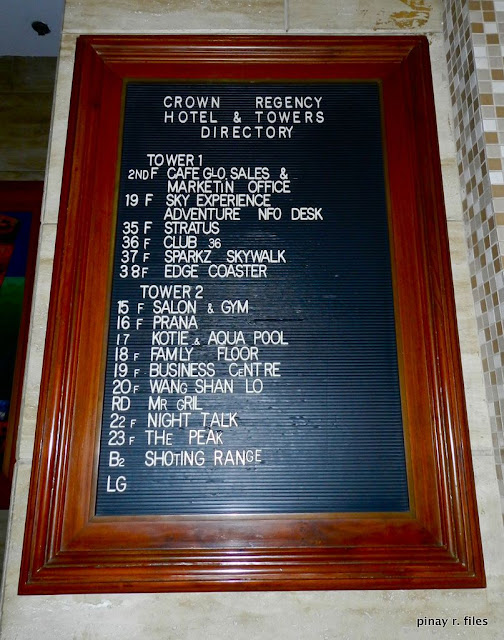 CROWN REGENCY
HOTEL & TOWERS
DIRECTORY
TOWER 1
2ND F CAFE GLO, SALES &
MARKETIN OFFICE
19 F SKY EXPERIENCE
ADVENTURE NFO DESK
35 F STRATUS
36 F CLUB 36
37 F SPARKZ SKYWALK
38 F EDGE COASTER
TOWER 2
15 F SALON & GYM
16 F PRANA
17 KOTIE & AQUA POOL
18 F FAMLY FLOOR
19 F BUSINESS CENTRE
20 F WANG SHAN LO
RD MR GRIL
22 F NIGHT TALK
23 F THE PEAK
B2 SHOTING RANGE
LG
pinay r. files